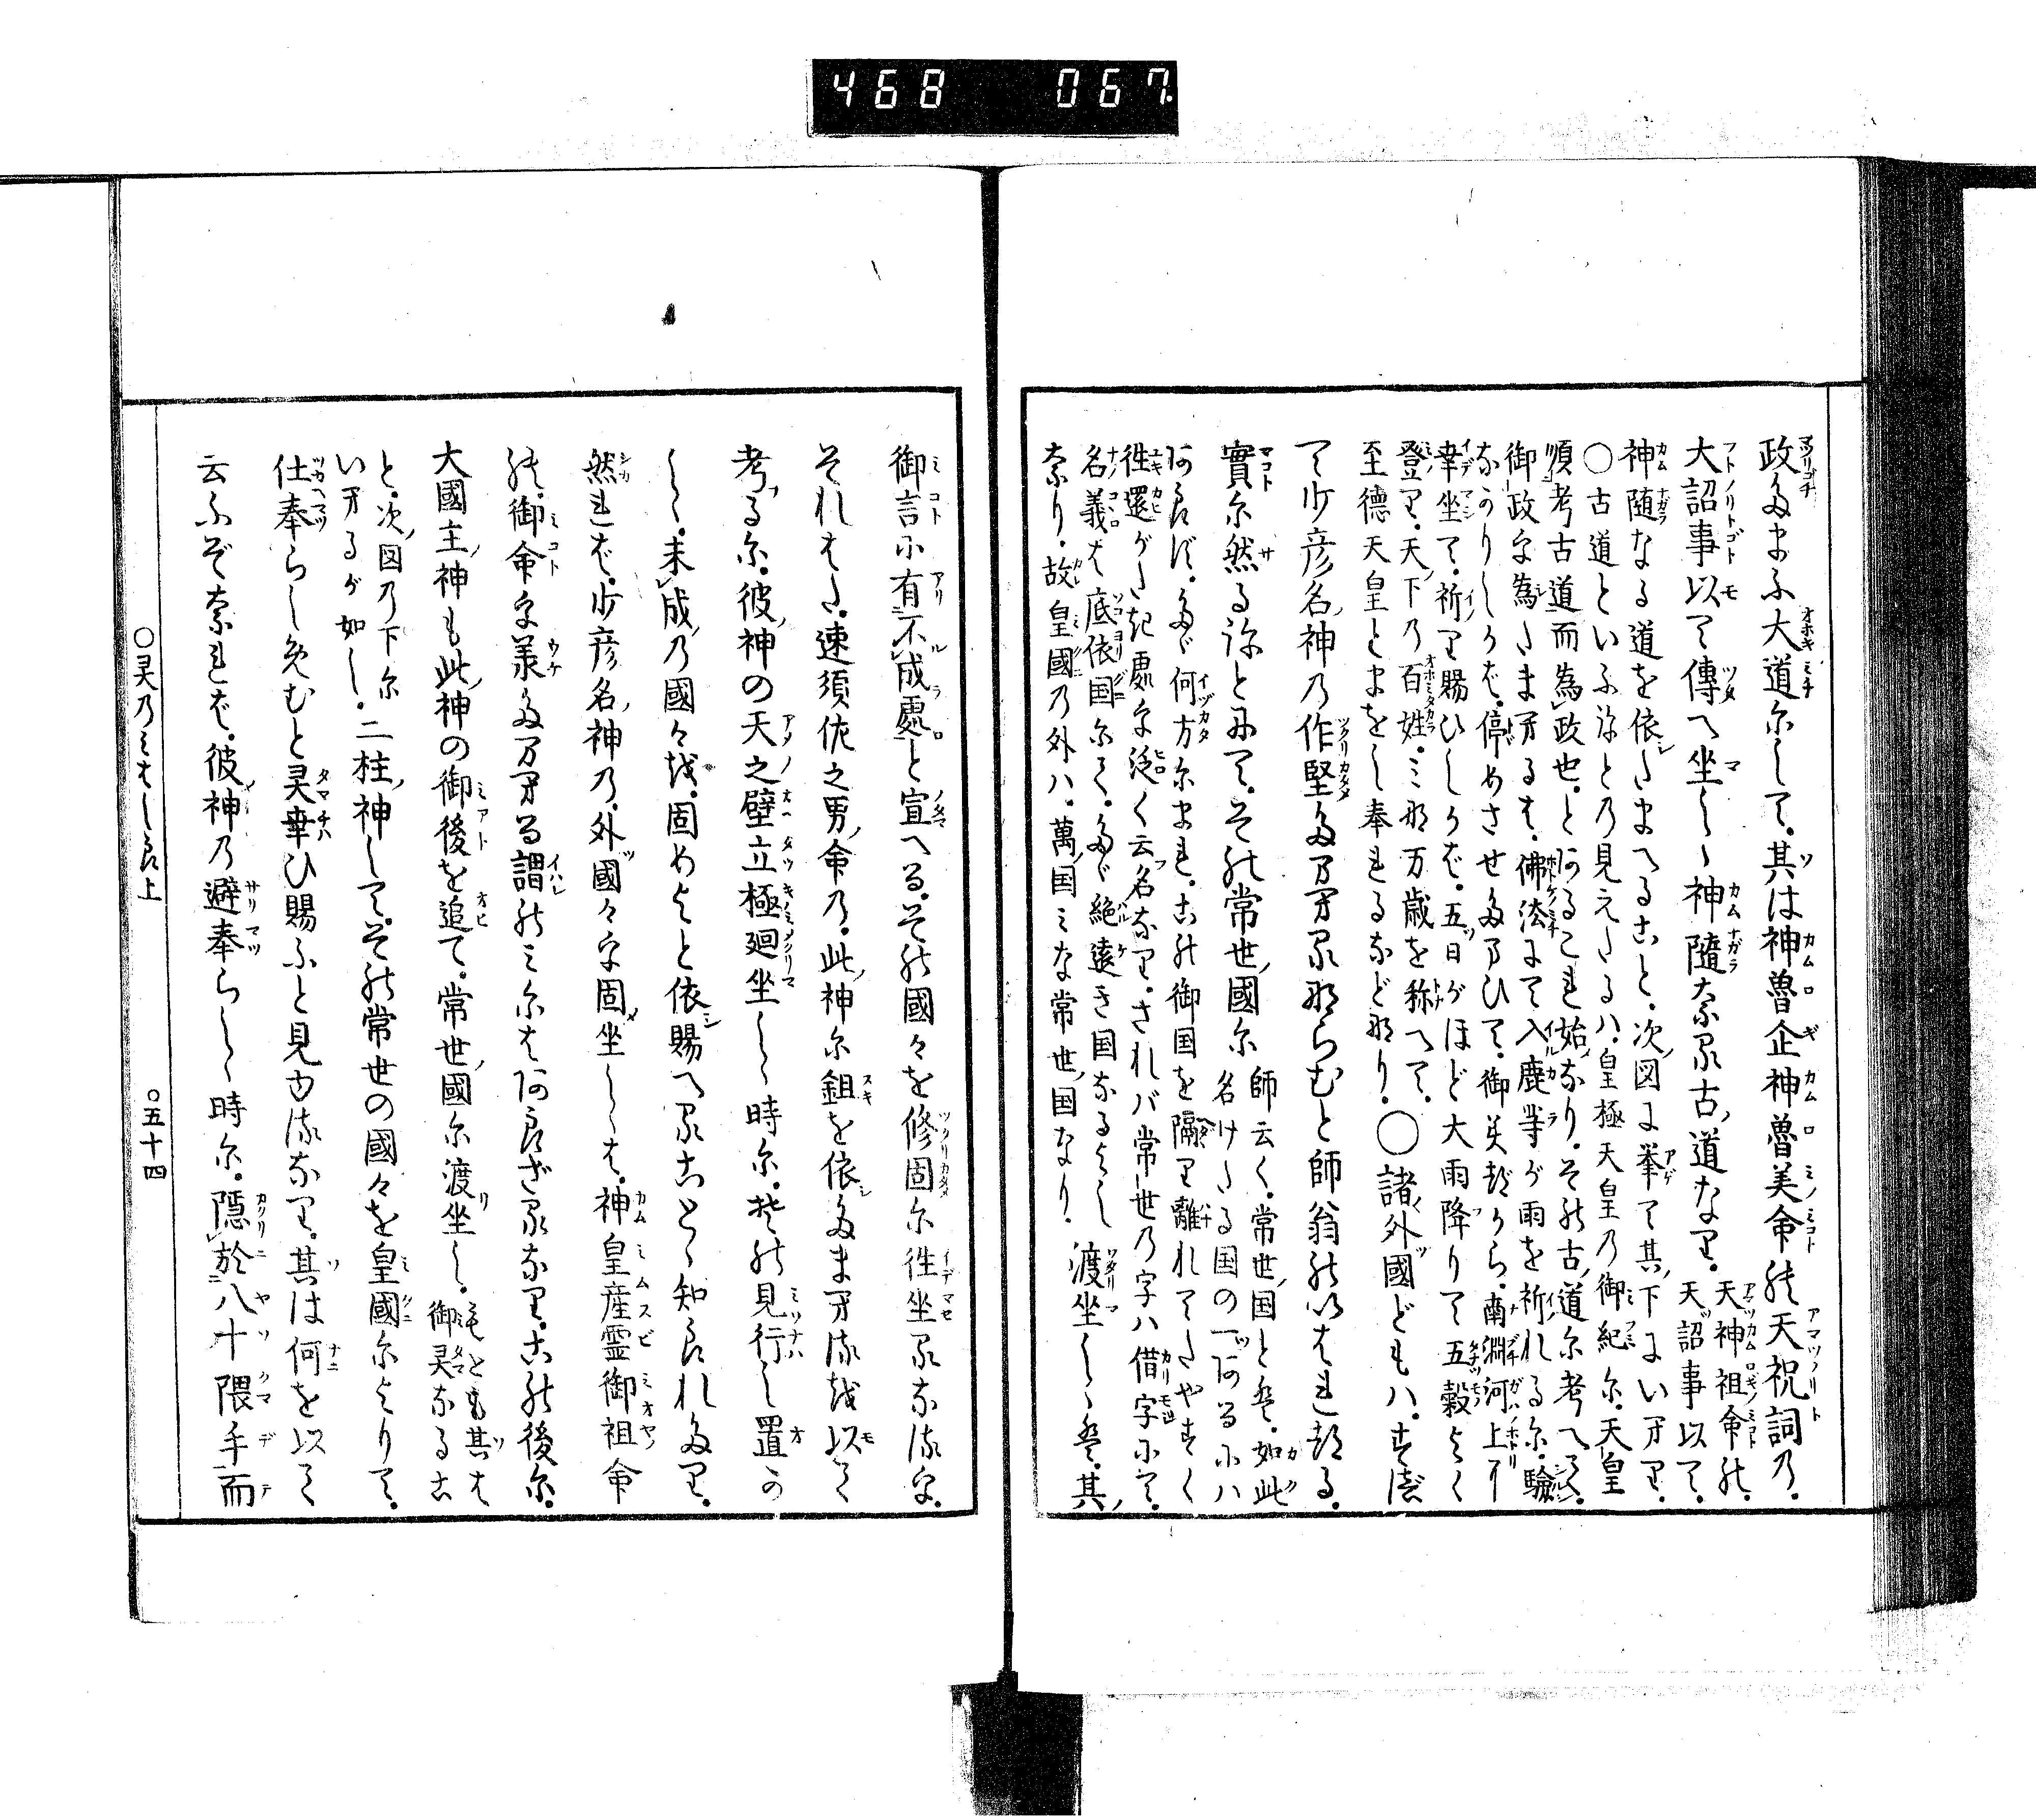 468 067.
政たまふ大道尓して。其は神魯企神魯美命能天祝詞乃。
大詔事以て傳へ坐しゝ神隨奈る古道なり。
天神祖命能。
天詔事以て。
神随なる道を依したまへること。次図に挙て其下にいへり。
○古道といふ称との見えたるハ皇極天皇乃御紀尓。天皇
順考古道而為政也。とあるこれ始なり。その古道尓考へて。
御政を為たまへるは。佛法にて入鹿等が雨を祈れる尓。驗
なかりしかば。停めさせたまひて。御芙から。南淵河上に
幸坐て。祈り賜ひしかば。五日がほど大雨降りて五穀よく
登り。天下乃百姓。みな万歳を称へて。
至德天皇とまをし奉れるなど那り。
○諸外國どもハ。すべ
て少彦名神乃作堅たまへる那らむと師翁能いはれたる。
實尓然る称とみて。その常世國尓
師云く。常世国とは。如此
名けたる国の一つあるにハ
あらず。たゞ何方尓まれ。この御国を隔り離れてたやすく
徃還がたき處を泛く云名なり。されバ常世乃字ハ借字にて。
名義は底依国尓て。たゞ絶遠き国なるよし
奈り。故皇國乃外ハ。萬国みな常世国なり。
渡坐しゝは。其
御言に有不成處と宣へる。その國々を修固尓徃坐るな流を。
それはた。速須佐之男命乃。此神尓鉏を依たまへ流を以て
考る尓。彼神の天之壁立極廻坐しゝ時尓。その見行し置か
しゝ。未成乃國々を。固めよと依賜へることゝ知られたり。
然れば。少彦名神乃。外國々を固坐しゝは。神皇産霊御祖命
能。御命を羕たまへる謂のみ尓はあらざるなり。この後尓。
大國主神も此神の御後を追て。常世國尓渡坐し。
もとも其は
御灵なるこ
と。次図乃下尓
いへるが如し。
二柱神して。その常世の國々を皇國尓よりて。
仕奉らしめむと灵幸ひ賜ふと見ゆ流なり。其は何を以て
云ふぞなれば。彼神乃避奉らしゝ時尓。隠於八十隈手而
○灵乃みはしら上
○五十四